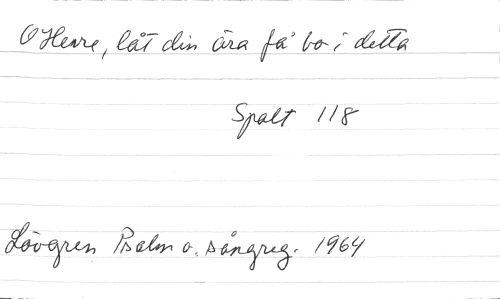 O Herre, låt din ära få bo i detta
Spalt 118
Lövgren Psalm o. sångreg. 1964